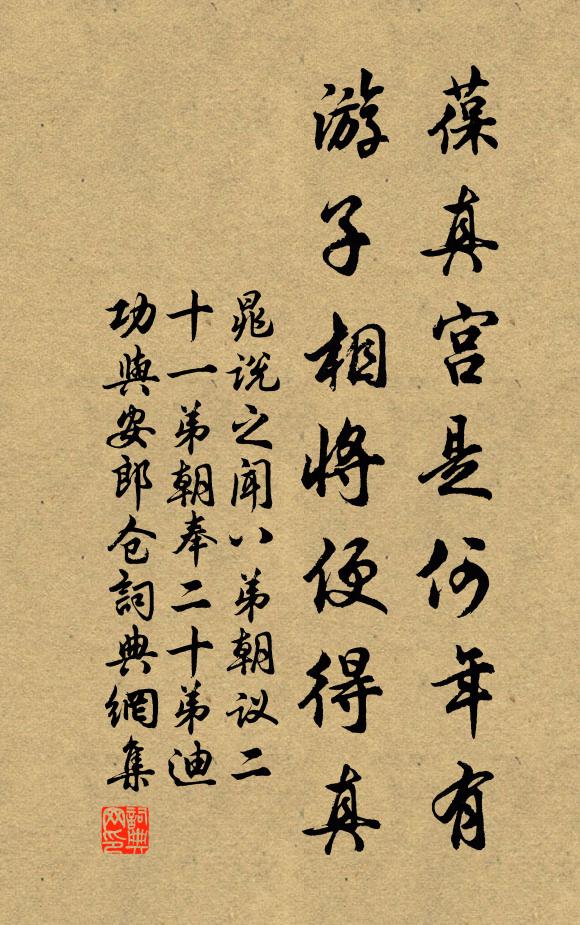 葆真宫是何年有
游子相将便得真
晁说之闻八弟朝议二
十一弟朝奉二十弟迪
功與安郎仓詞典網集
詞典网印